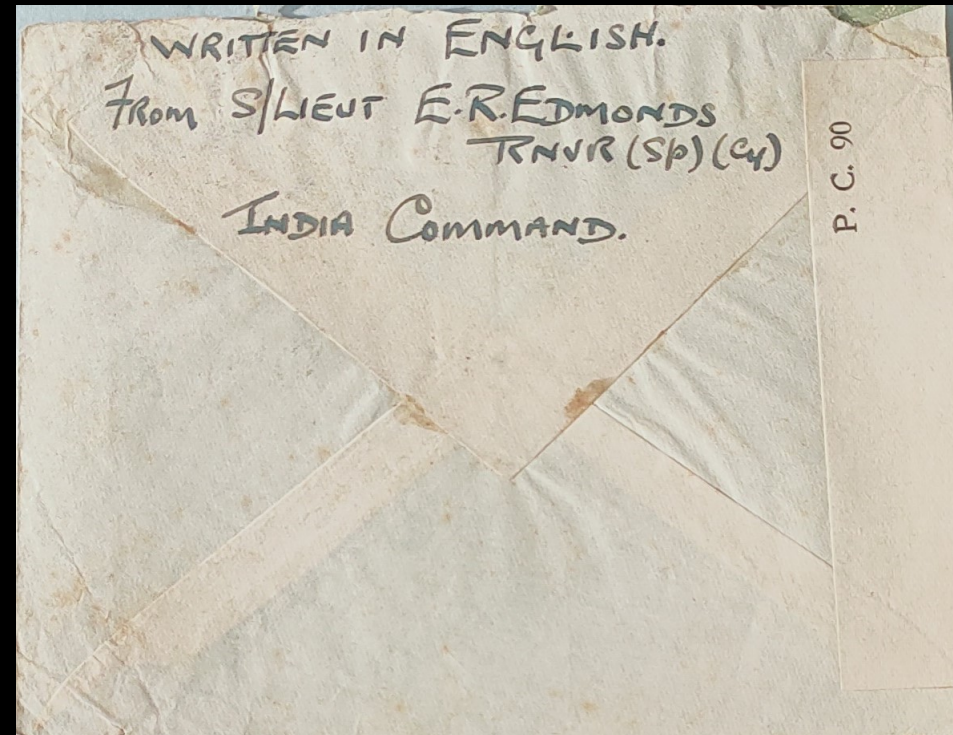 WRITTEN IN ENGLISH.
From S/LIEUT E.R.EDMONDS
RNVR (Sp) (Cy)
INDIA COMMAND.
P. C. 90